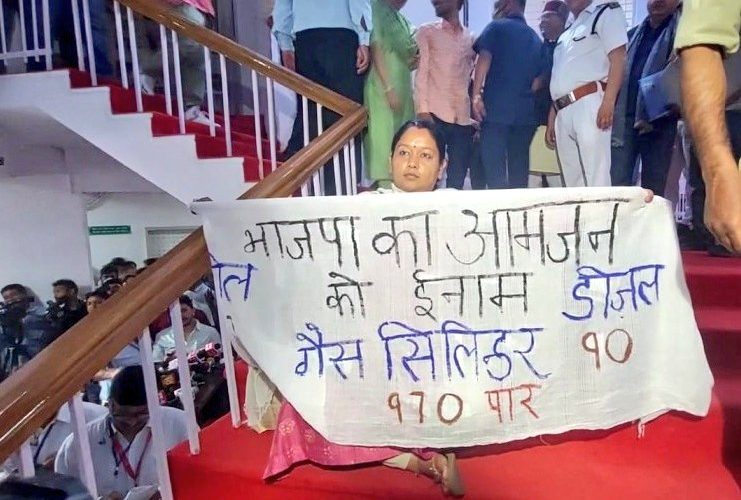 भाजपा का आमजन
को ईनाम डीज़ल
गैस सिलिन्डर १०
१70 पार